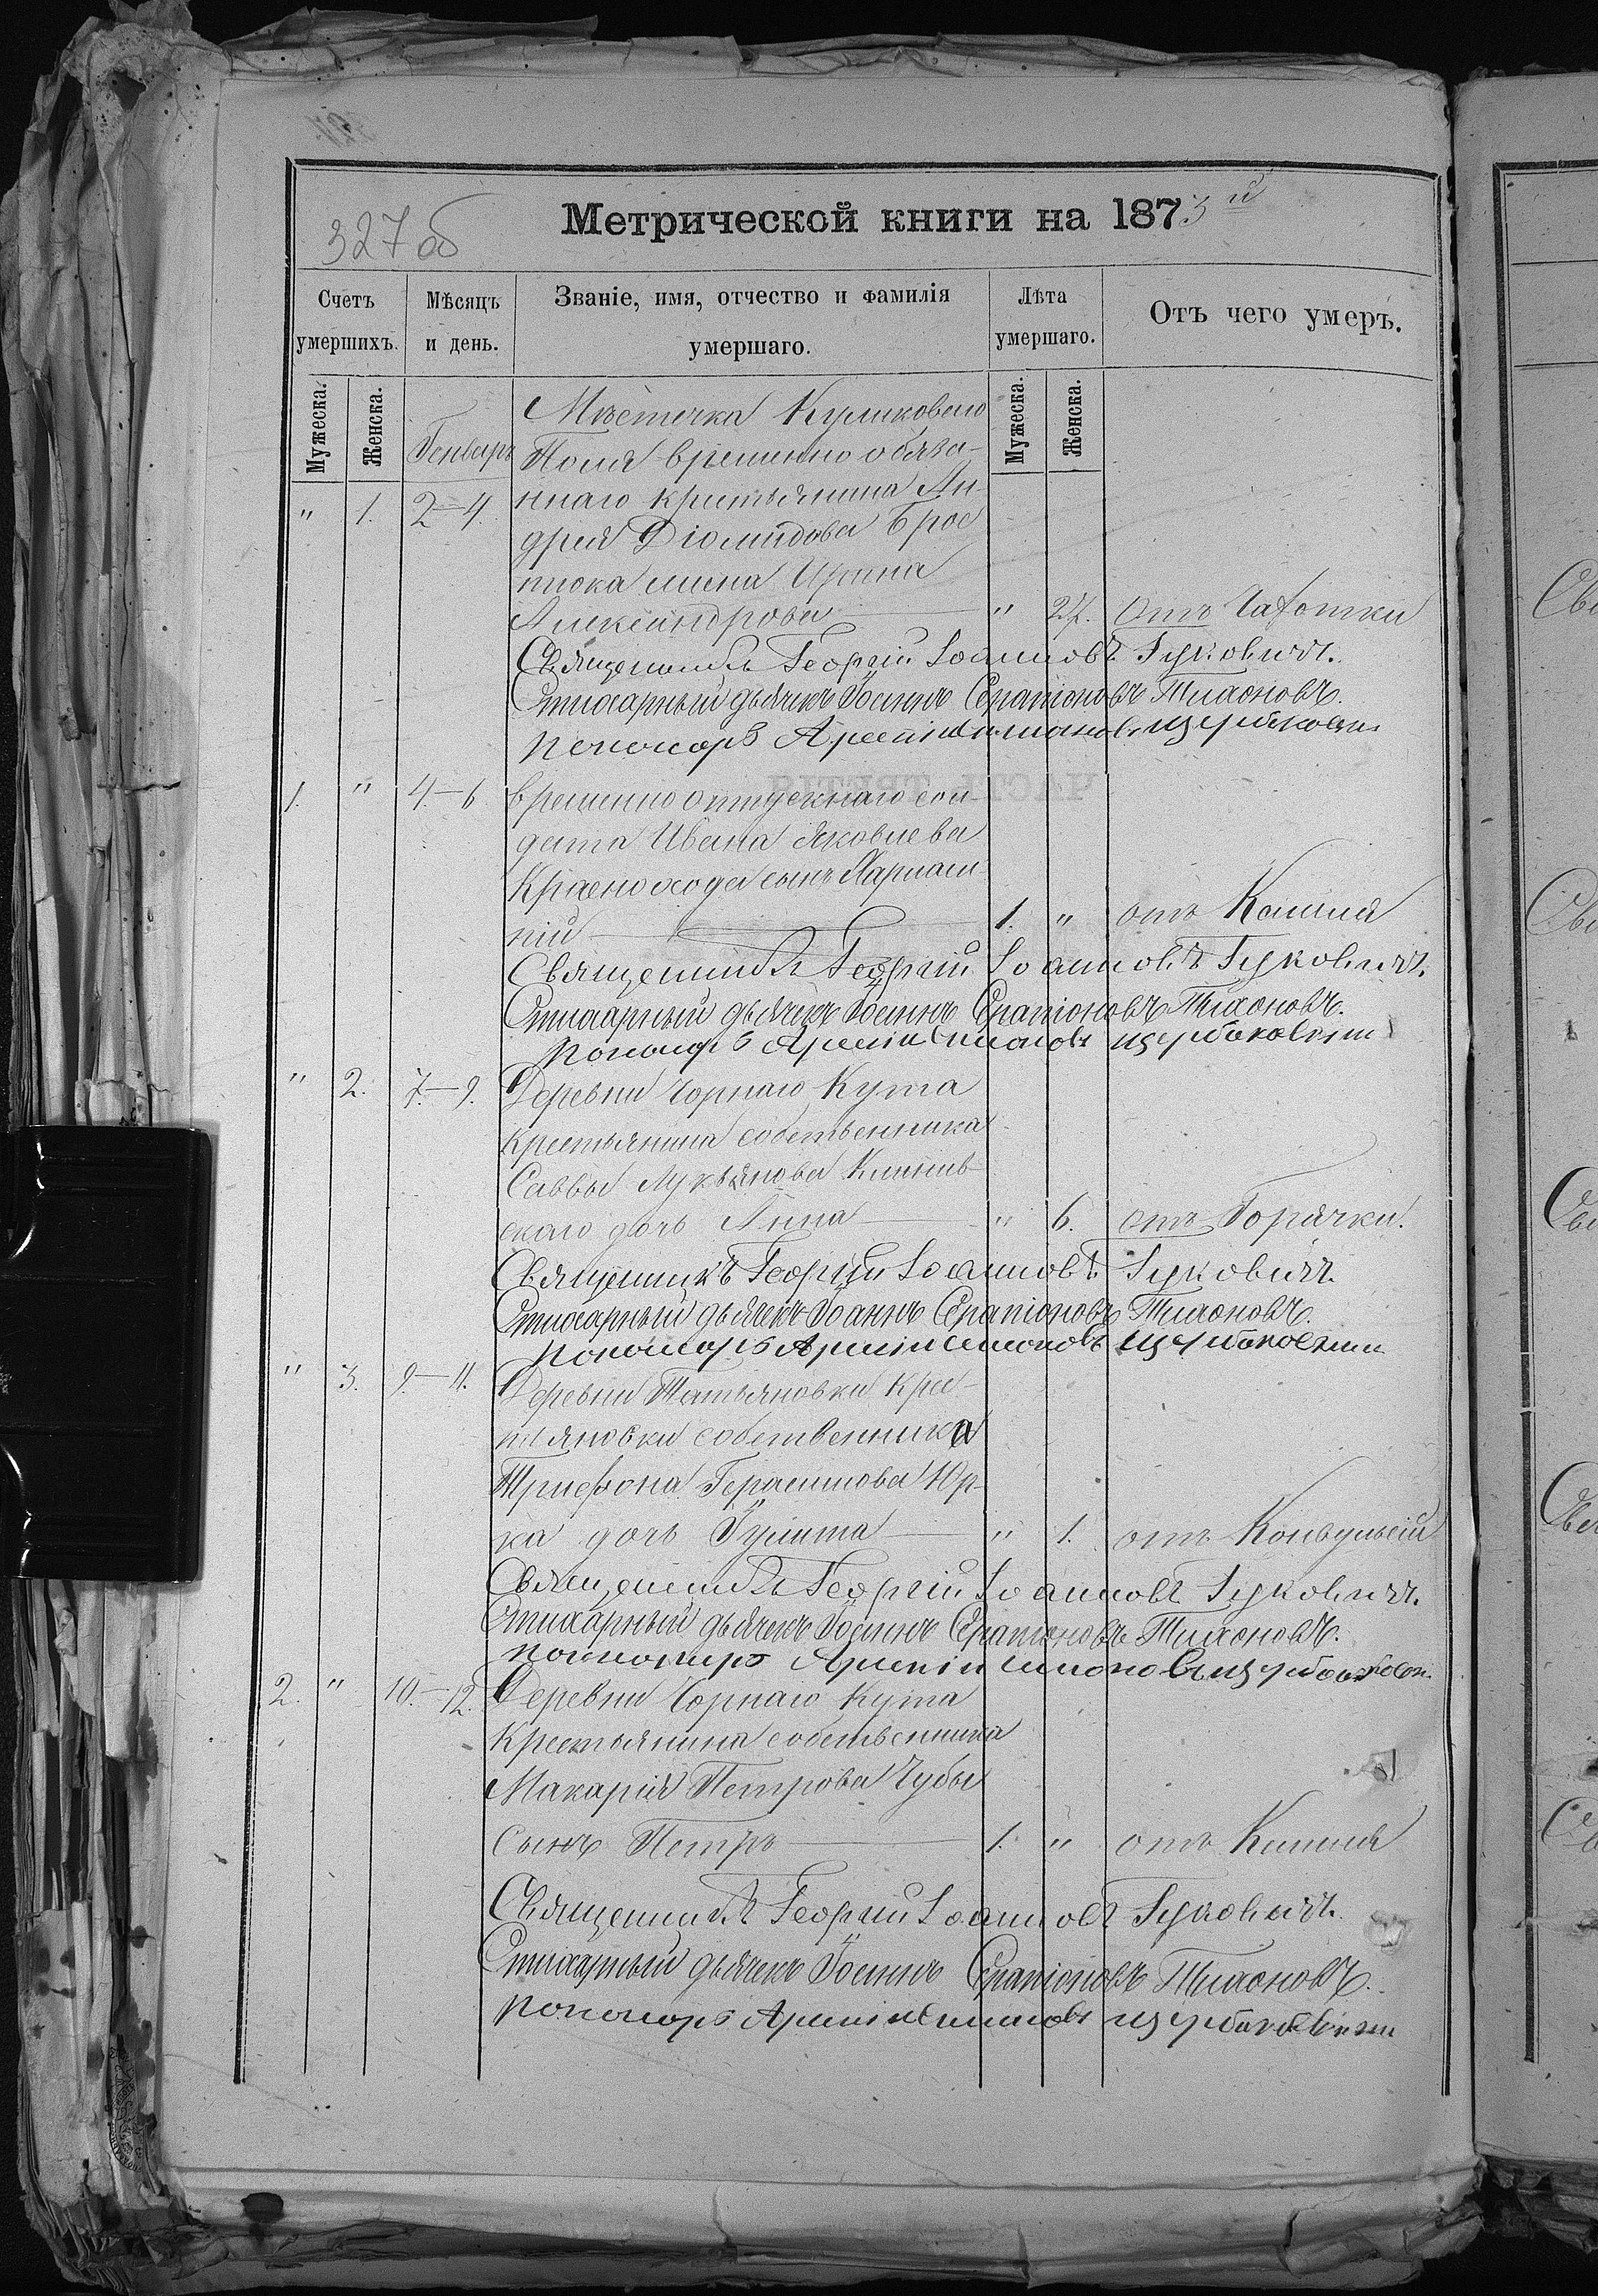 327 об
Метрической книги на 1873й
Счетъ умершихъ.
Мѣсяцъ и день.
Званіе, имя, отчество и фамилія умершаго.
Лѣта умершаго.
Отъ чего умеръ.
Мужеска.
Женска.
Мужеска.
Женска.
Генварь
Мѣстечка Куликоваго
Поля временно обяза-
" 1. 2–4. ннаго крестьянина Ан-
дрея Діомидова Брос
нюка жена Ирина
Александрова " 27. отъ Чахотки
Священникъ Георгій Іоанновъ Гуковичъ.
Стихарный дьячекъ Іоаннъ Серапіоновъ Тихоновъ.
пономарь Арсеній Симоновъ Щербаковскій
1. " 4–6 временно отпускнаго сол-
дата Ивана Яковлева
Краснохода сынъ
ній 1. " отъ Кашля
Священникъ Георгій Іоанновъ Гуковичъ.
Стихарный дьячекъ Іоаннъ Серапіоновъ Тихоновъ.
пономарь Арсеній Симоновъ Щербаковскій
" 2. 7–9. Деревни Чорнаго Кута
крестьянина собственника
Саввы Лукьянова
скаго дочь Анна " 6. отъ Горячки.
Священникъ Георгій Іоанновъ Гуковичъ.
Стихарный дьячекъ Іоаннъ Серапіоновъ Тихоновъ.
пономарь Арсеній Симоновъ Щербаковскій
" 3. 9–11. Деревни Татьяновки кре-
стьяновки собственника
Трифона Герасимова Юр-
ка дочь Гулита " 1. отъ Конвульсій
Священникъ Георгій Іоанновъ Гуковичъ.
Стихарный дьячекъ Іоаннъ Серапіоновъ Тихоновъ.
пономарь Арсеній Симоновъ Щербаковскій
2. " 10–12. Деревни Чорнаго Кута
крестьянина собственника
Макарія Петрова Чубы
сынъ Петръ 1. " отъ Кашля
Священникъ Георгій Іоанновъ Гуковичъ.
Стихарный дьячекъ Іоаннъ Серапіоновъ Тихоновъ.
пономарь Арсеній Симоновъ Щербаковскій